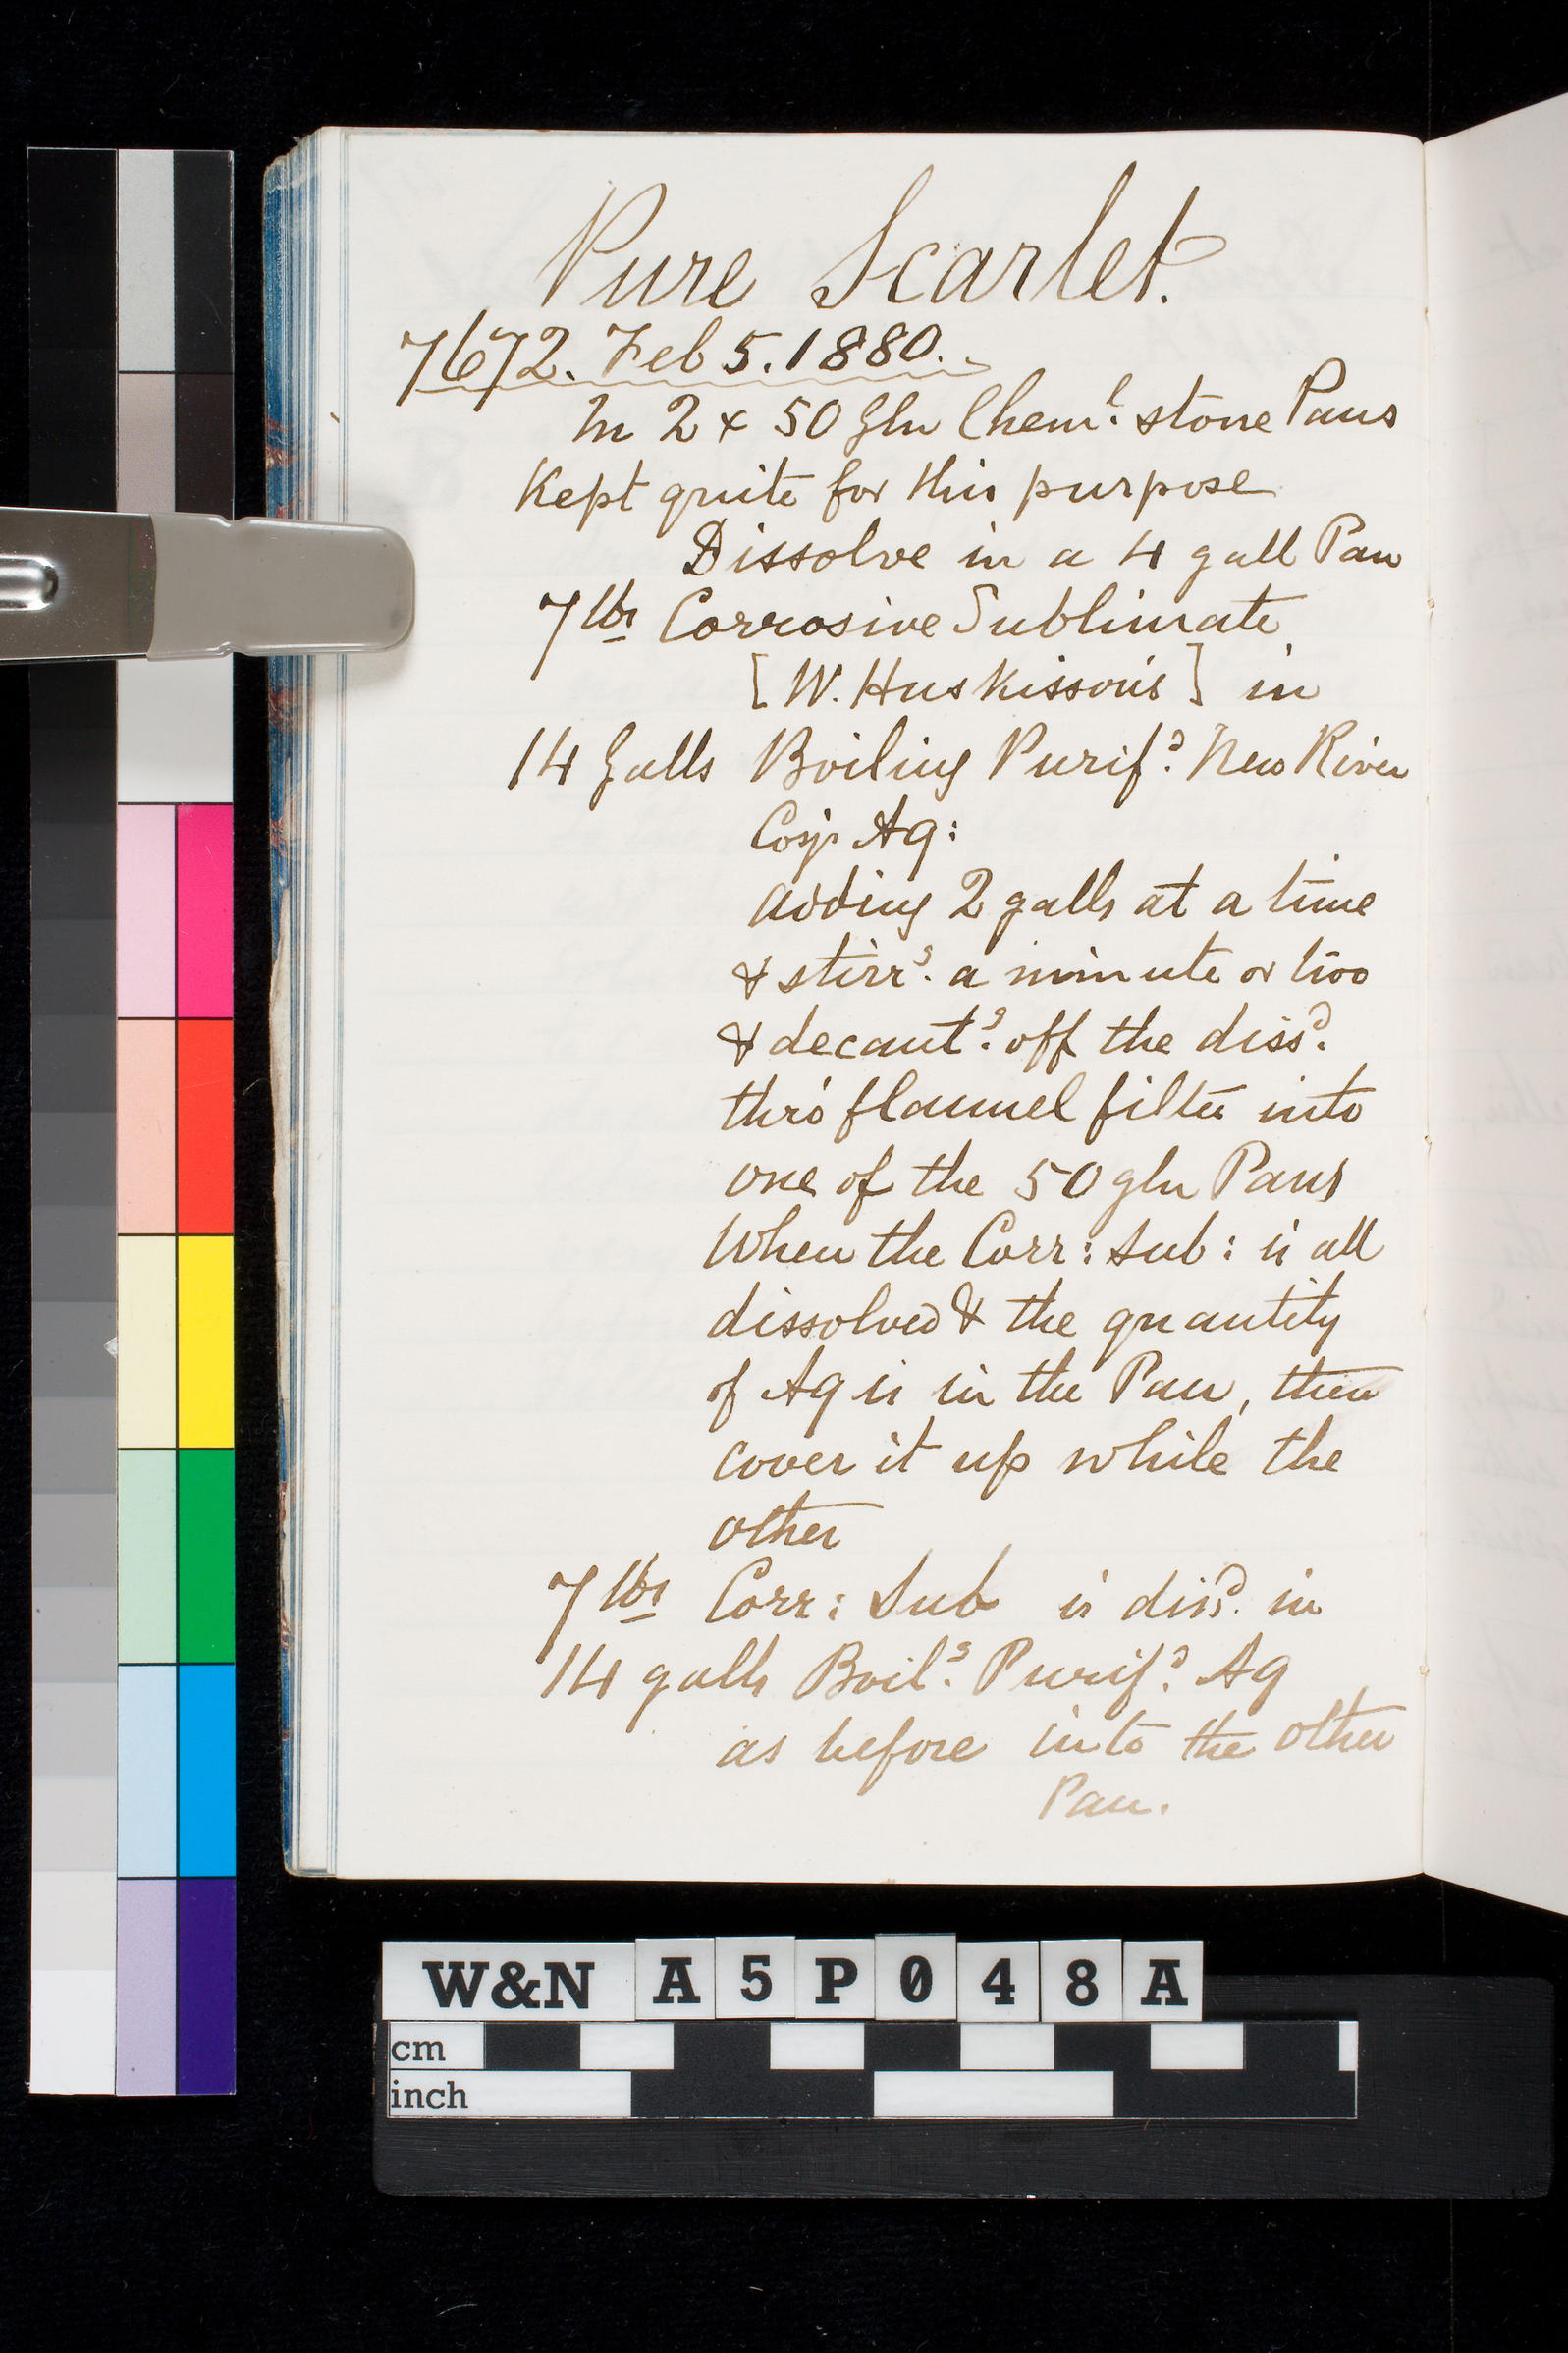 Pure Scarlet.
7672. Feb 5. 1880.
In 2 x 50 Gln Cheml. stone Pans
Kept quite for this purpose
Dissolve in a 4 gall Pan
7 lbs Corrosive Sublimate
[W. Huskisson's] in
14 Galls Boiling Purifd. New River
Coy's Aq:
adding 2 galls at a time
& stirrg. a minute or two
& decantg. off the dissd.
thro' flannel filter into
one of the 50 gln Pans
When the Corr: Sub: is all
dissolved & the quantity
of Aq is in the Pan, then
cover it up while the
other
7 lbs Corr: Sub is dissd. in
14 galls Boilg. Purifd. Aq
as before into the other
Pan.
W&N A5P048A
cm
inch